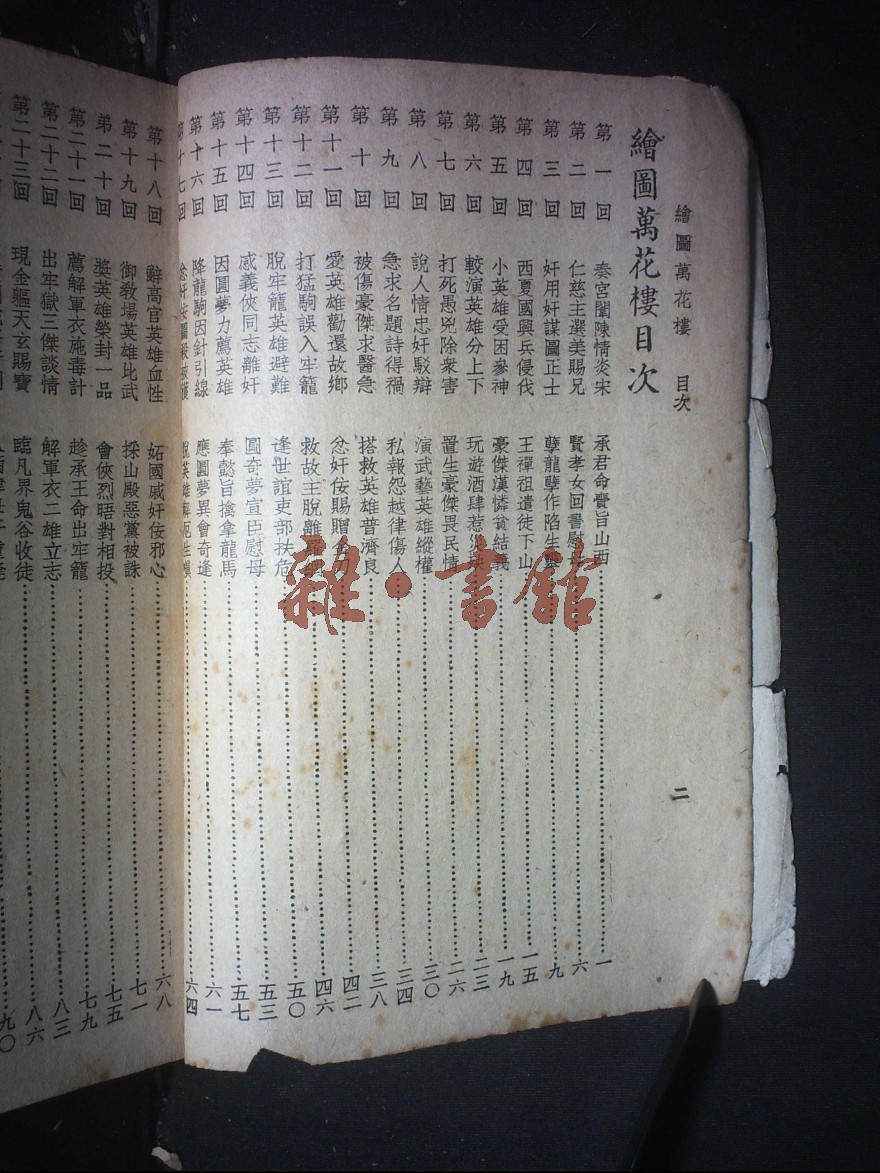 繪圖萬花樓 目次 二
繪圖萬花樓目次
第一回 秦宮闈陳情炎宋 承君命賫旨山西 一
第二回 仁慈主選美賜兄 賢孝女回書慰 六
第三回 奸用奸謀圖正士 孽龍孽作陷生 九
第四回 西夏國興兵侵伐 王禪祖遣徒下山 一五
第五回 小英雄受困參神 豪傑漢憐貧結義 一九
第六回 較演英雄分上下 玩遊酒肆惹災 二三
第七回 打死愚兇除衆害 置生豪傑畏民情 二六
第八回 說人情忠奸駁辯 演武藝英雄縱權 三〇
第九回 急求名題詩得禍 私報怨越律傷人 三四
第十回 被傷豪傑求醫急 搭救英雄普濟良 三八
第十一回 愛英雄勸還故鄉 忿奸佞賜贈刀 四二
第十二回 打猛駒誤入牢籠 救故主脫離 四六
第十三回 脫牢籠英雄避難 逢世誼吏部扶危 五〇
第十四回 感義俠同志離奸 圓奇夢宣臣慰母 五三
第十五回 因圓夢力薦英雄 奉懿旨擒拿龍馬 五七
第十六回 降龍駒因針引線 應圓夢異會奇逢 六一
第十七回 六四
第十八回 辭高官英雄血性 妬國戚奸佞邪心 六八
第十九回 御敎場英雄比武 採山殿惡黨被誅 七一
第二十回 獎英雄榮封一品 會俠烈晤對相投 七五
第二十一回 薦解軍衣施毒計 趁承王命出牢籠 七九
第二十二回 出牢獄三傑談情 解軍衣二雄立志 八三
第二十三回 現金軀天玄賜寶 臨凡界鬼谷收徒 八六
九〇
雜·書館